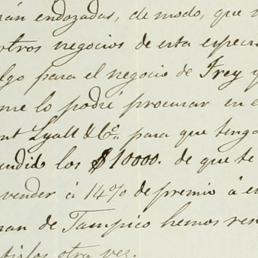 rán endozadas, de modo, que
otros negocios de esta especie
lgo para el negocio de Frey y
me lo podré procurar en e
nt Lyall &Cª. para que teng
undido los $10000. de que te
vender á 14% de premio á e
man de Tampico hemos re
tirlos otra vez.